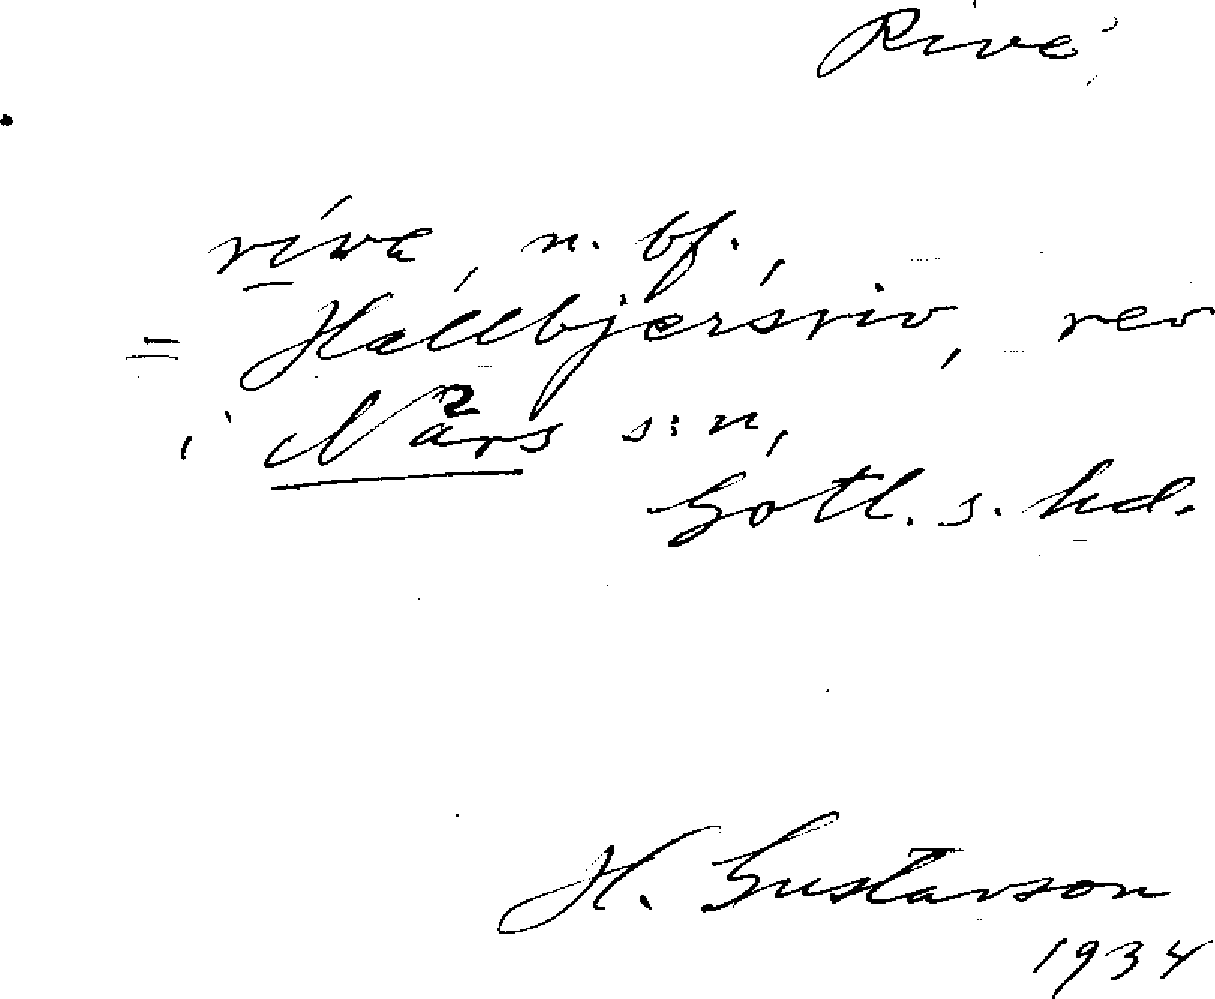 Rive
ríve, n. bf.,
= Hallbjersriv, rev
i Nårs s:n,
Gotl. s. hd.
H. Gustavson
1934